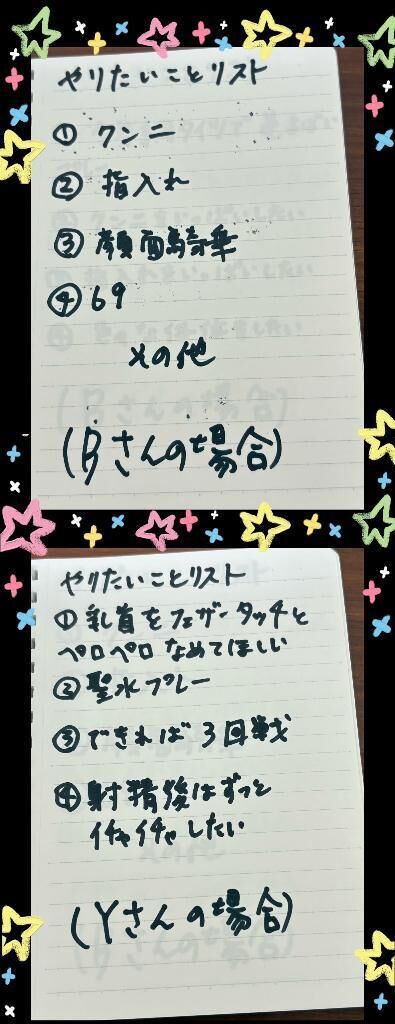 やりたいことリスト
① クンニ
② 指入れ
③ 顔面騎乗
④ 69
その他
(Bさんの場合)
やりたいことリスト
① 乳首をフェザータッチと
ペロペロなめてほしい
② 聖水プレー
③ できれば3回戦
④ 射精後はずっと
イチャイチャしたい
(Yさんの場合)